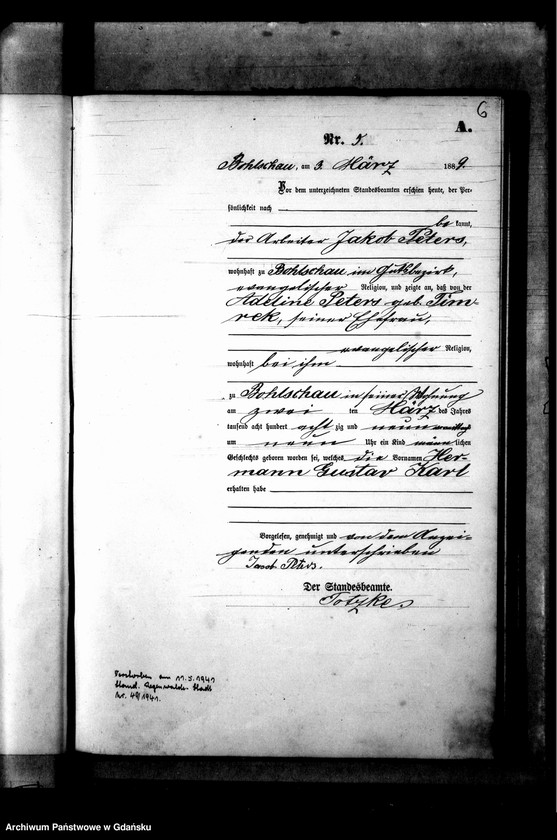 6
A.
Nr. 5.
Bohlschau, am 3. März 1889.
Vor dem unterzeichneten Standesbeamten erschien heute, der Per-
sönlichkeit nach
be kannt,
der Arbeiter Jakob Peters,
wohnhaft zu Bohlschau im Gutsbezirk,
evangelischer Religion, und zeigte an, daß von der
Adeline Peters geb. Tim-
rek, seiner Ehefrau,
evangelischer Religion,
wohnhaft bei ihm
zu Bohlschau in seiner Wohnung
am zwei ten März des Jahres
tausend acht hundert acht zig und neun
um neun Uhr ein Kind männ lichen
Geschlechts geboren worden sei, welches die Vornamen Her-
mann Gustav Karl
erhalten habe
Vorgelesen, genehmigt und von dem Anzei-
genden unterschrieben
Jacob
Der Standesbeamte.
Totzke
Verstorben am 11.3.1941
Stand. Regenwalde Stadt
Nr. /1941.
Archiwum Państwowe w Gdańsku